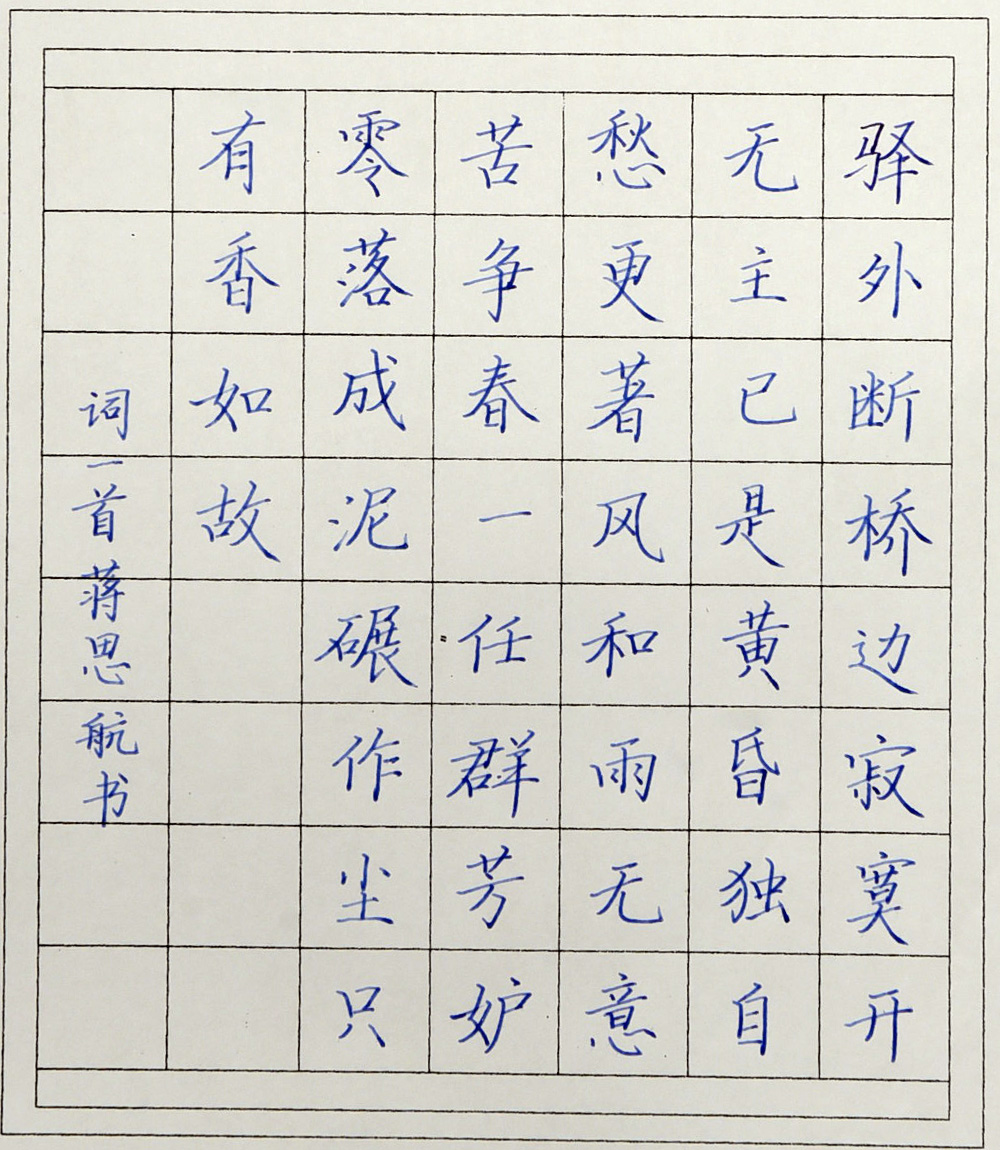 驿外断桥边寂寞开
无主已是黄昏独自
愁更著风和雨无意
苦争春一任群芳妒
零落成泥碾作尘只
有香如故
词一首蒋思航书